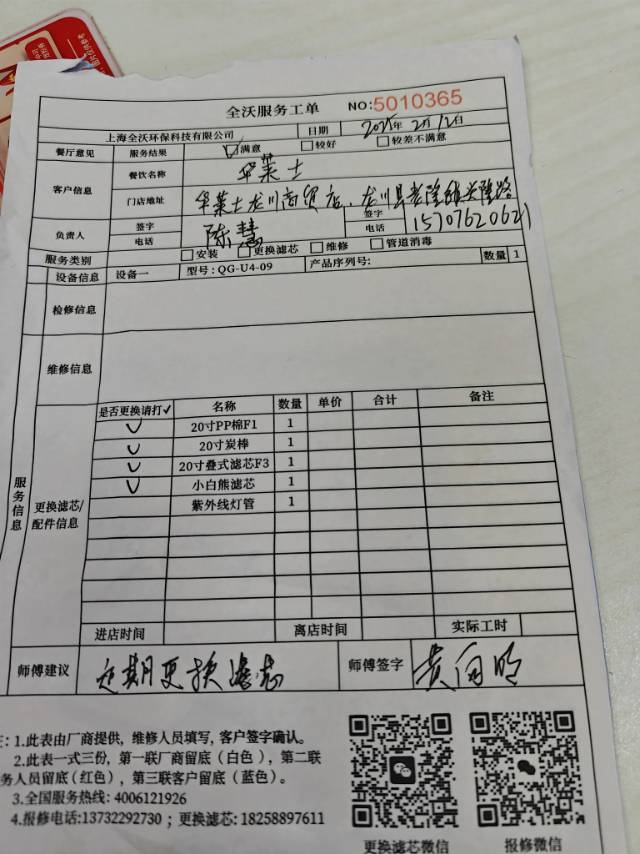 全沃服务工单 NO:5010365
上海全沃环保科技有限公司 日期 2025年2月12日
餐厅意见 服务结果 ☑满意 □较好 □较差不满意
客户信息 餐饮名称 华莱士
门店地址 华莱士龙川商贸店、龙川县老隆镇兴隆路
负责人 签字 陈慧 签字
电话 电话 15707620621
服务类别 □安装 □更换滤芯 □维修 □管道消毒
设备信息 设备一 型号: QG-U4-09 产品序列号: 数量 1
检修信息
维修信息
服务信息
更换滤芯/配件信息
是否更换请打✓ 名称 数量 单价 合计 备注
✓ 20寸PP棉F1 1
✓ 20寸炭棒 1
✓ 20寸叠式滤芯F3 1
✓ 小白熊滤芯 1
紫外线灯管 1
进店时间 离店时间 实际工时
师傅建议 定期更换滤芯 师傅签字 黄向明
: 1.此表由厂商提供, 维修人员填写, 客户签字确认。
2.此表一式三份, 第一联厂商留底(白色), 第二联
务人员留底(红色), 第三联客户留底(蓝色)。
3.全国服务热线: 4006121926
4.报修电话:13732292730 ; 更换滤芯: 18258897611
更换滤芯微信 报修微信